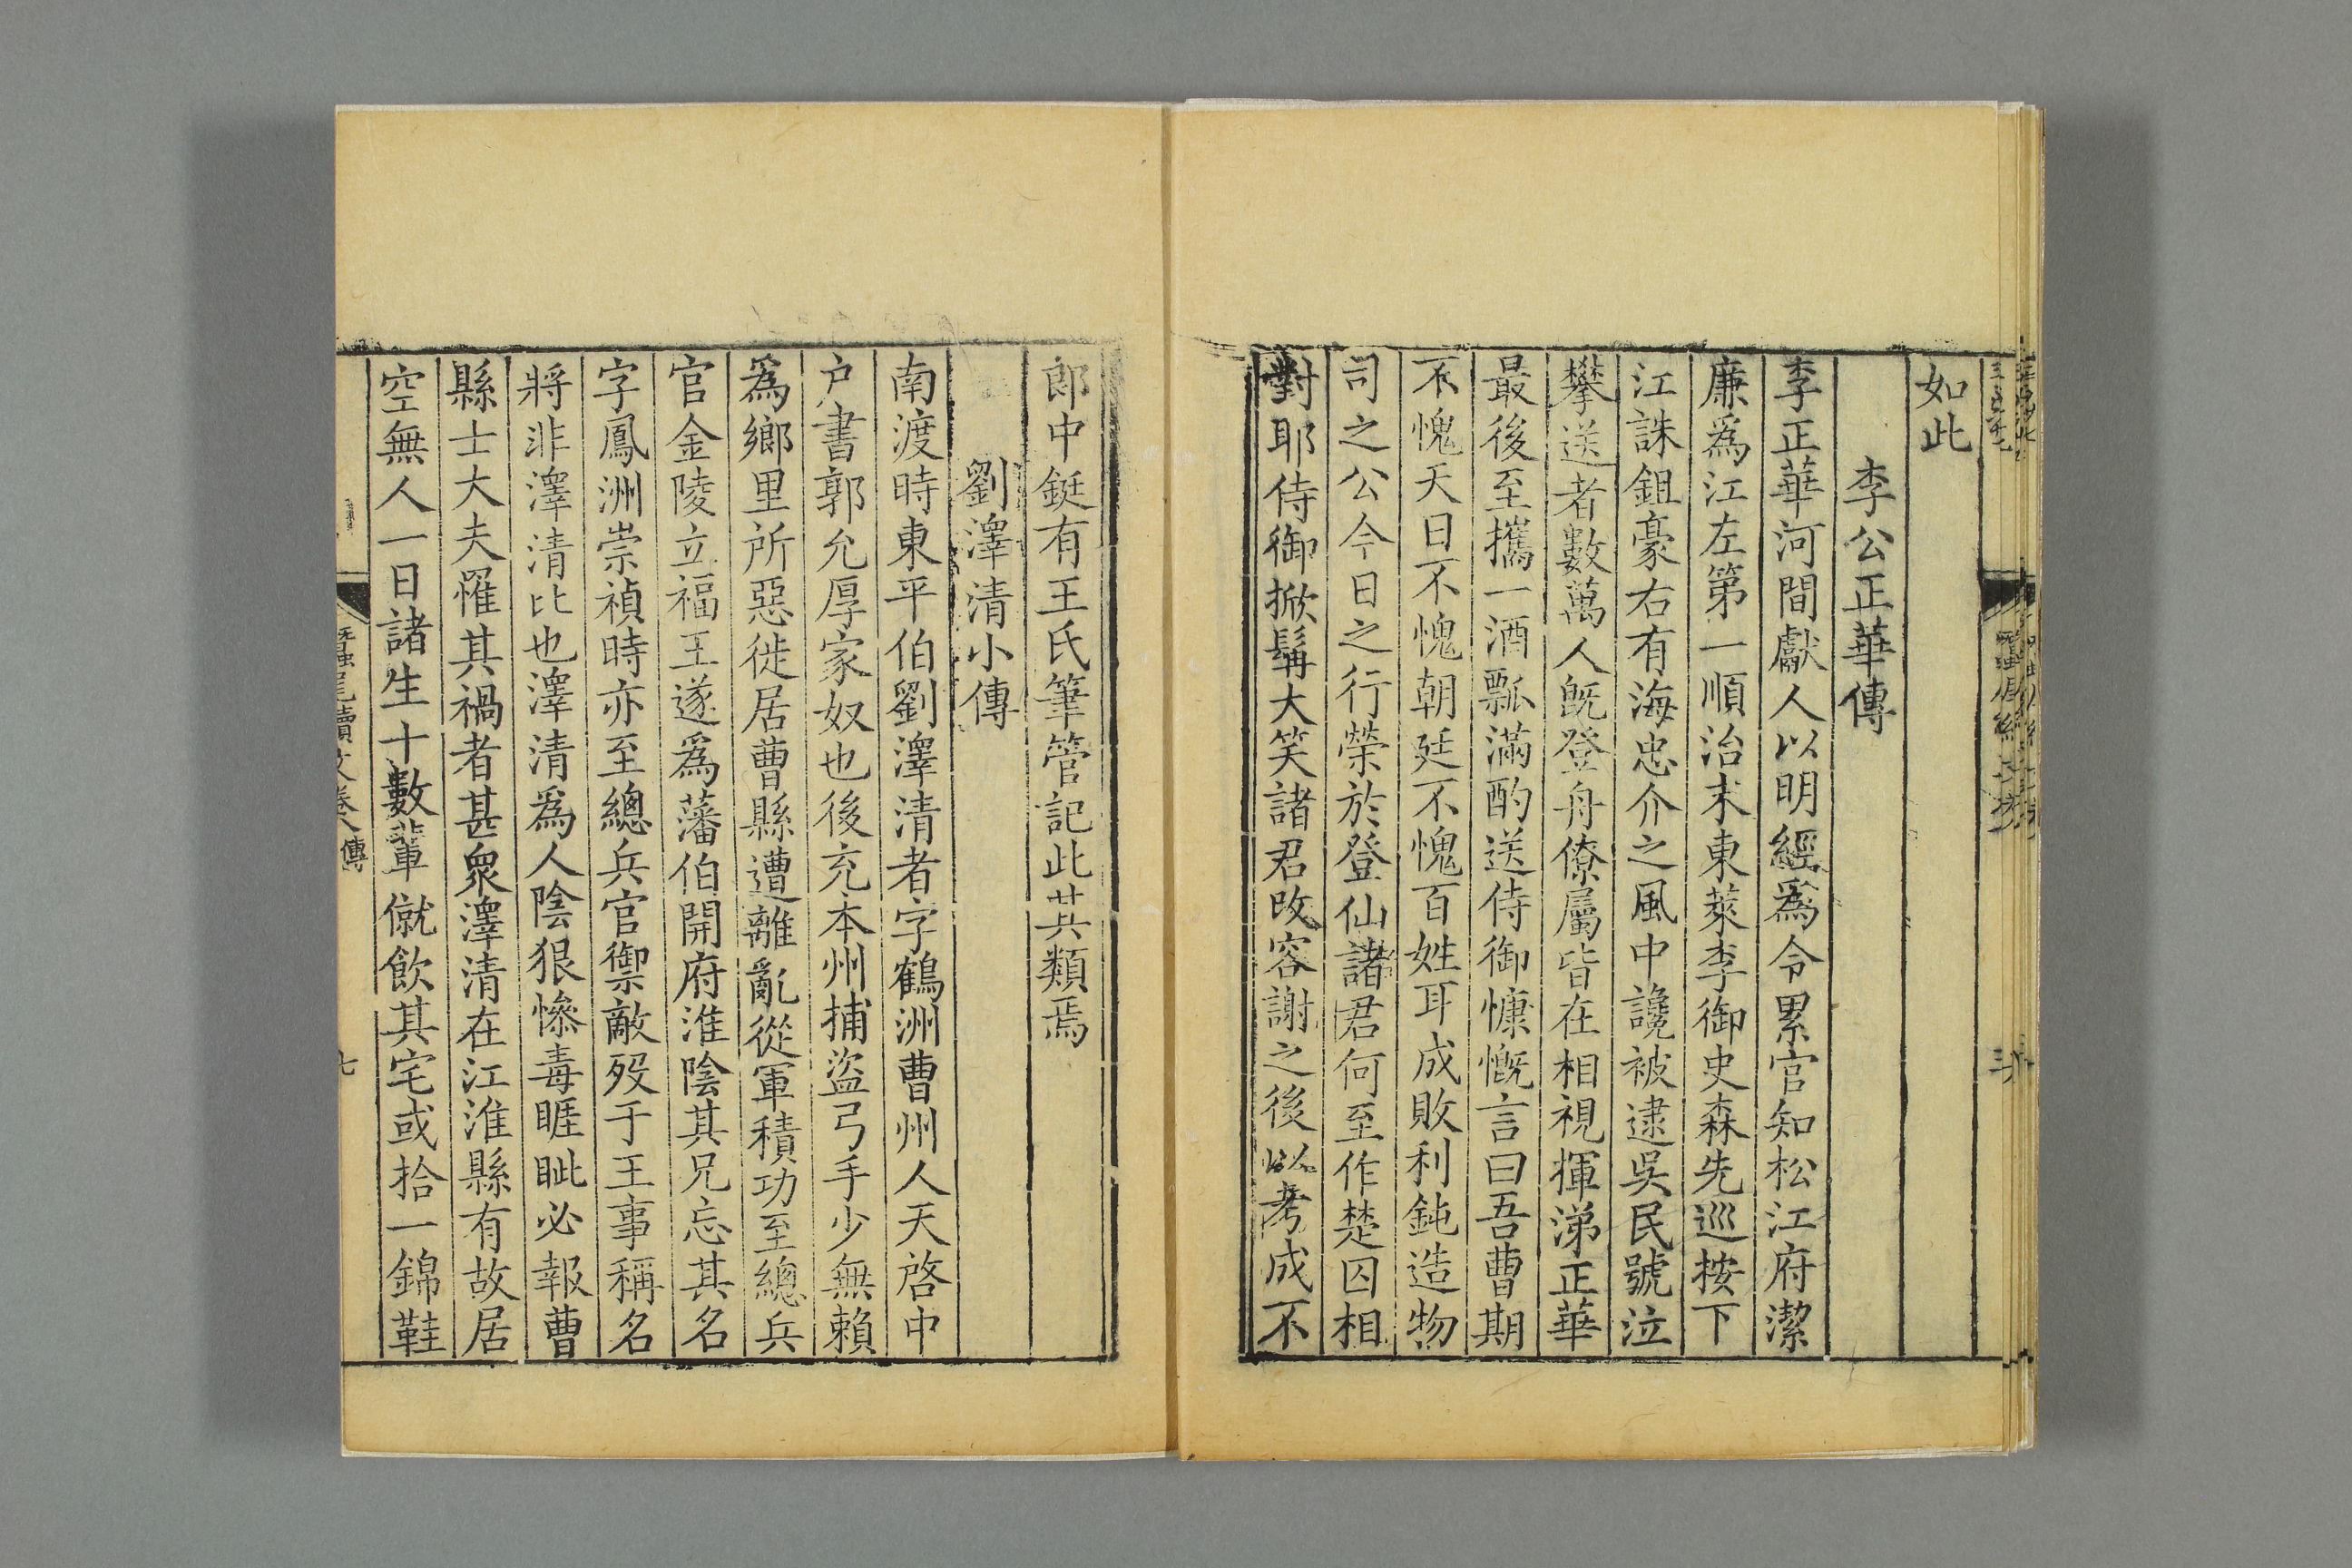 如此
李公正華傳
李正華河間獻人以明經爲令累官知松江府潔
廉爲江左第一順治末東萊李御史森先巡按下
江誅鉏豪右有海忠介之風中讒被逮吳民號泣
攀送者數萬人旣登舟僚屬皆在相視揮涕正華
最後至攜一酒瓢滿酌送侍御慷慨言曰吾曹期
不愧天日不愧朝廷不愧百姓耳成敗利鈍造物
司之公今日之行榮於登仙諸君何至作楚囚相
對耶侍御掀髯大笑諸君改容謝之後以考成不
郎中鋌有王氏筆管記此其類焉
劉澤清小傳
南渡時東平伯劉澤清者字鶴洲曹州人天啓中
户書郭允厚家奴也後充本州捕盜弓手少無賴
爲鄉里所惡徙居曹縣遭離亂從軍積功至總兵
官金陵立福王遂爲藩伯開府淮陰其兄忘其名
字鳳洲崇禎時亦至總兵官禦敵歿于王事稱名
將非澤清比也澤清爲人陰狠慘毒睚眦必報曹
縣士大夫罹其禍者甚衆澤清在江淮縣有故居
空無人一日諸生十數輩僦飲其宅或拾一錦鞋
蠶尾續文卷八 傳
七